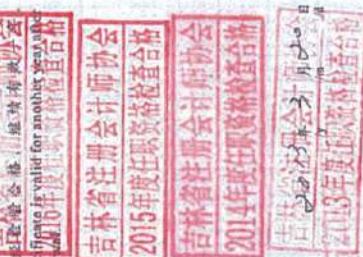 检验合格，继续有效
ificate is valid for another year after
年度任职资格检查合格
吉林省注册会计师协会
2015年度任职资格检查合格
吉林省注册会计师协会
2014年度任职资格检查合格
吉林省注册会计师协会
2013年3月20日
2013年度任职资格检查合格